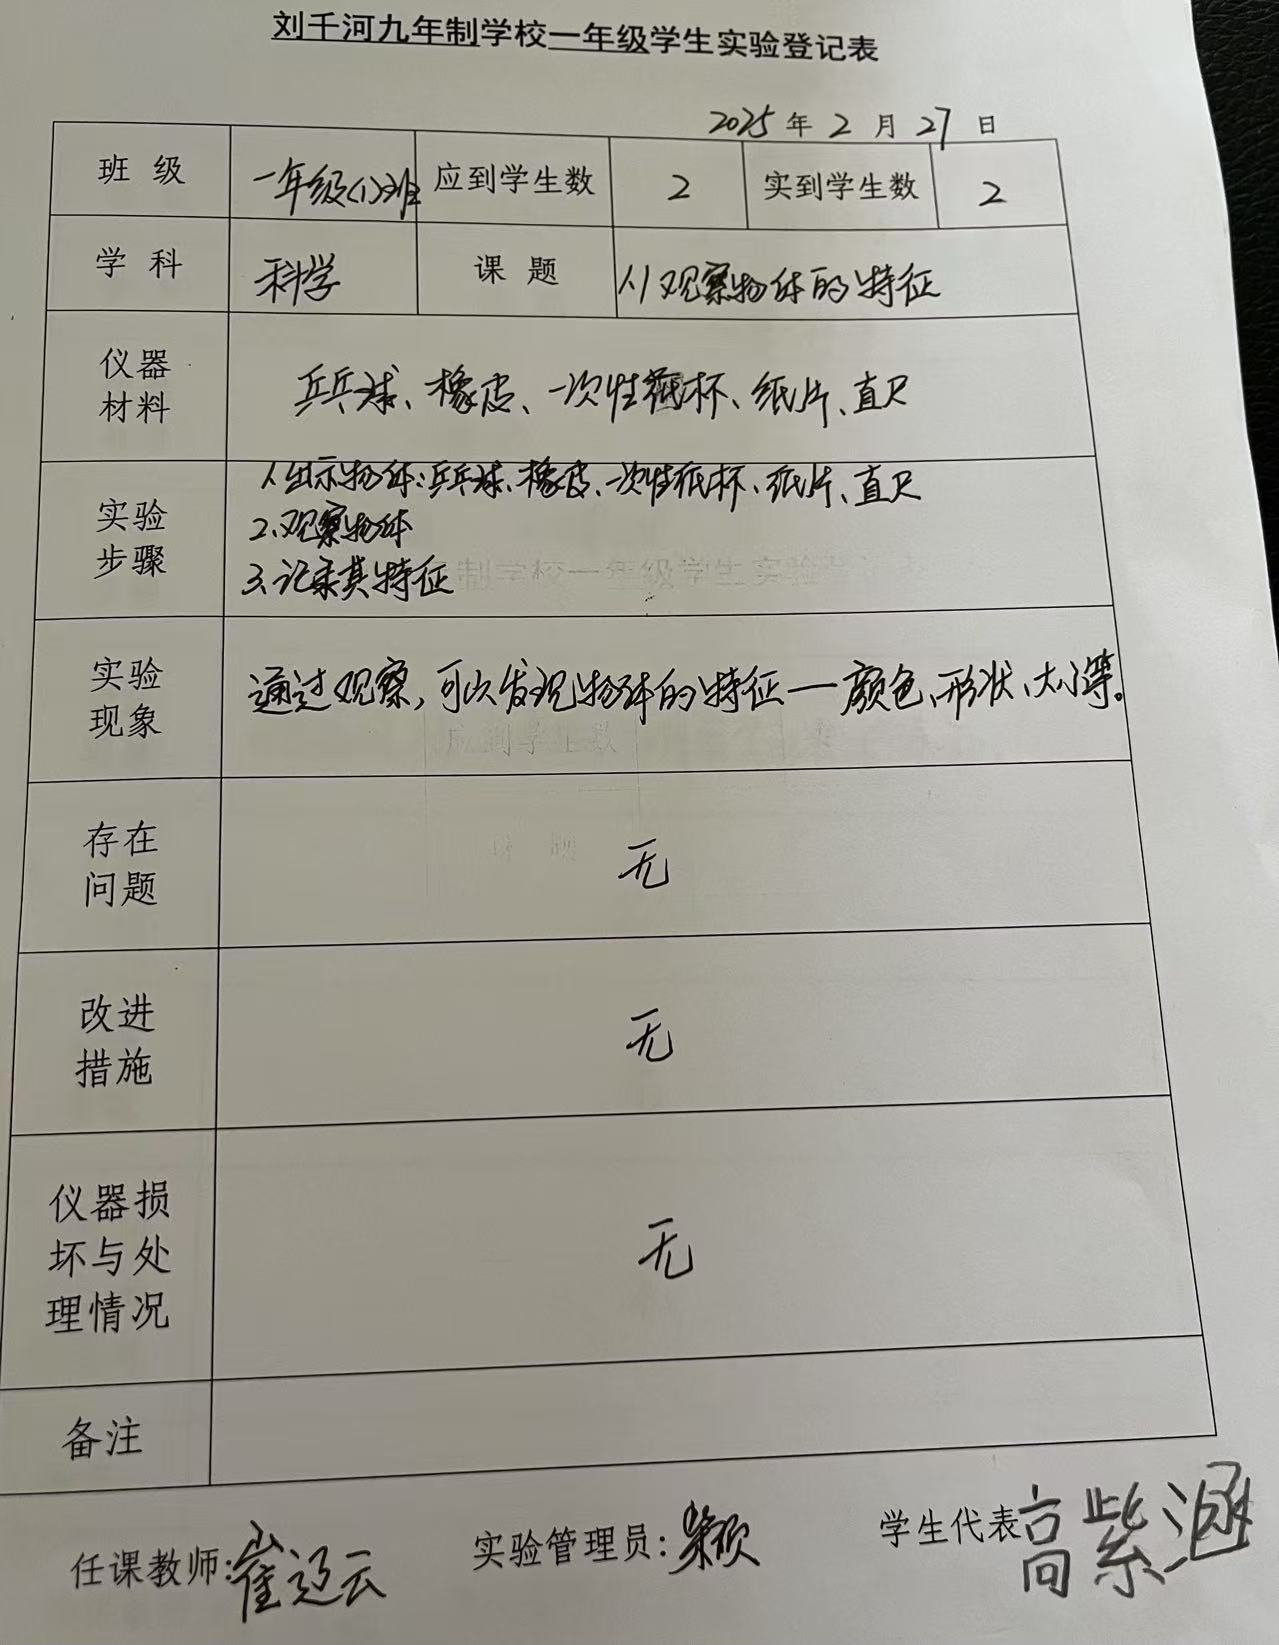 刘千河九年制学校一年级学生实验登记表
2025 年 2 月 27 日
班 级 一年级(1)班 应到学生数 2 实到学生数 2
学 科 科学 课 题 1.1 观察物体的特征
仪器
材料
乒乓球、橡皮、一次性纸杯、纸片、直尺
实验
步骤
1.出示物体:乒乓球、橡皮、一次性纸杯、纸片、直尺
2.观察物体
3.记录其特征
实验
现象
通过观察,可以发现物体的特征—颜色、形状、大小等。
存在
问题
无
改进
措施
无
仪器损
坏与处
理情况
无
备注
任课教师:崔迎云 实验管理员: 学生代表 高紫涵